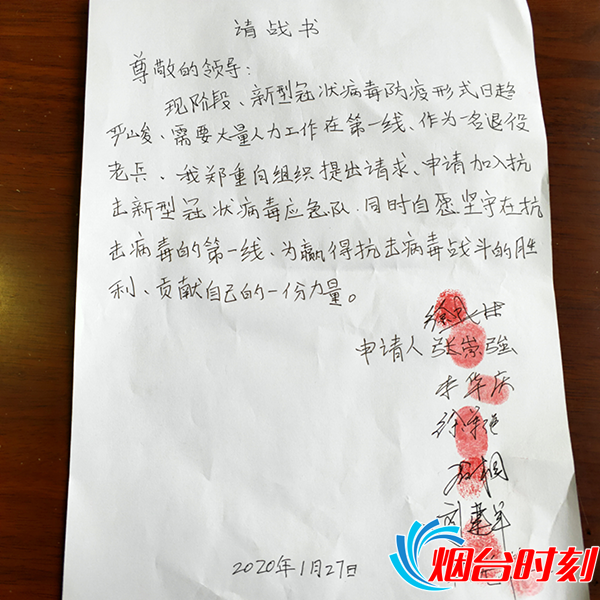 请战书
尊敬的领导:
现阶段、新型冠状病毒防疫形式日趋
严峻、需要大量人力工作在第一线、作为一名退役
老兵、我郑重向组织提出请求、申请加入抗
击新型冠状病毒应急队.同时自愿坚守在抗
击病毒的第一线、为赢得抗击病毒战斗的胜
利、贡献自己的一份力量。
申请人 张崇强
李华庆
2020年1月27日
烟台时刻